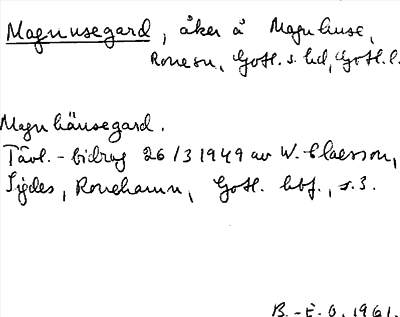 Magnusegard, åker å Magnhuse,
Rone sn, Gotl. s. hd, Gotl. l.
Magnhäusegard.
Tävl.-bidrag 26/3 1949 av W. Claesson,
Sigdes, Ronehamn, Gotl. hbf., s. 3.
B.-E. O. 1961.